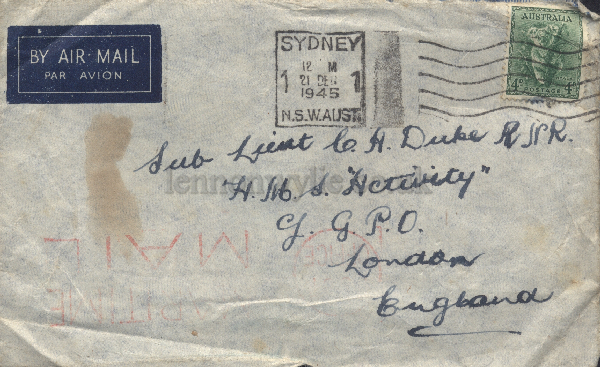 BY AIR MAIL
PAR AVION
SYDNEY
12 M
21 DEC
1 1
1945
N.S.W. AUST
AUSTRALIA
4D 4D
POSTAGE
Sub Lieut C. H. Duke R.N.R.
"H.M.S. "Activity"
G.P.O.
London
England
MAIL